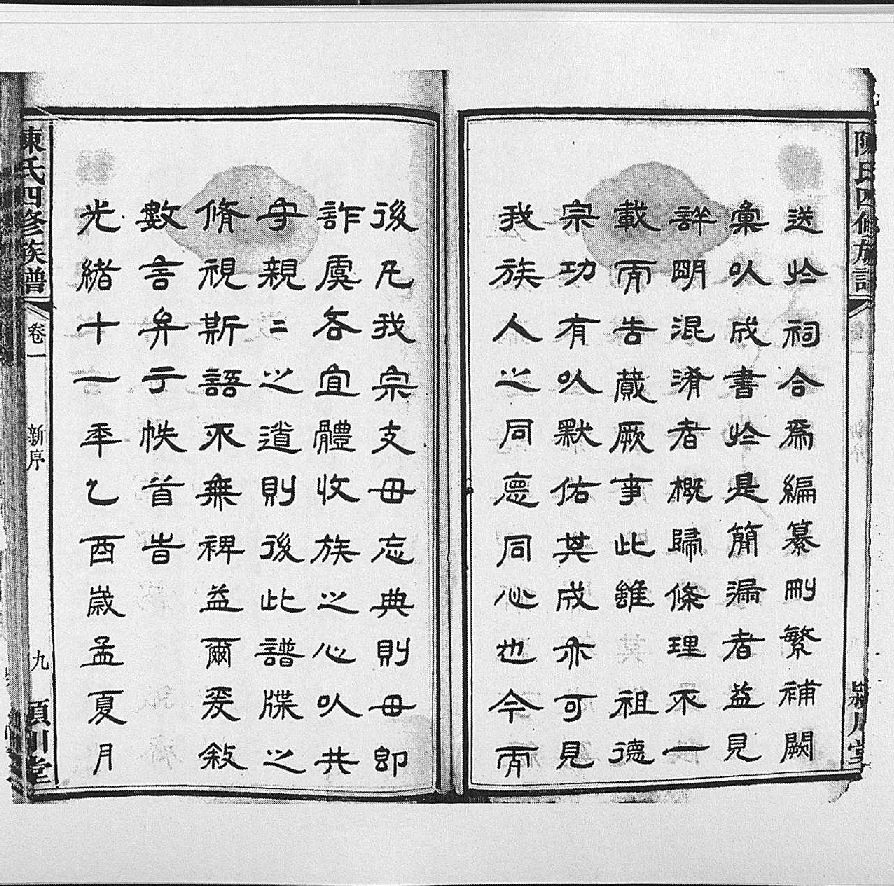 陳氏四修族譜
潁川堂
送扵祠合爲編纂刪繁補闕
彙㕥成書扵是簡漏者益見
詳明混淆者概歸條理不一
載而告蕆厥事此雖祖德
宗功有㕥默佑其成亦可見
我族人之同德同心也今而
後凡我宗支毋忘典則毋即
詐虞各宜體收族之心㕥共
守親二之道則後此譜牒之
脩視斯語不無裨益爾爰敘
數言弁于帙首旹
光緒十一年乙酉歲孟夏月
陳氏四修族譜
卷一
新序
九
潁川堂